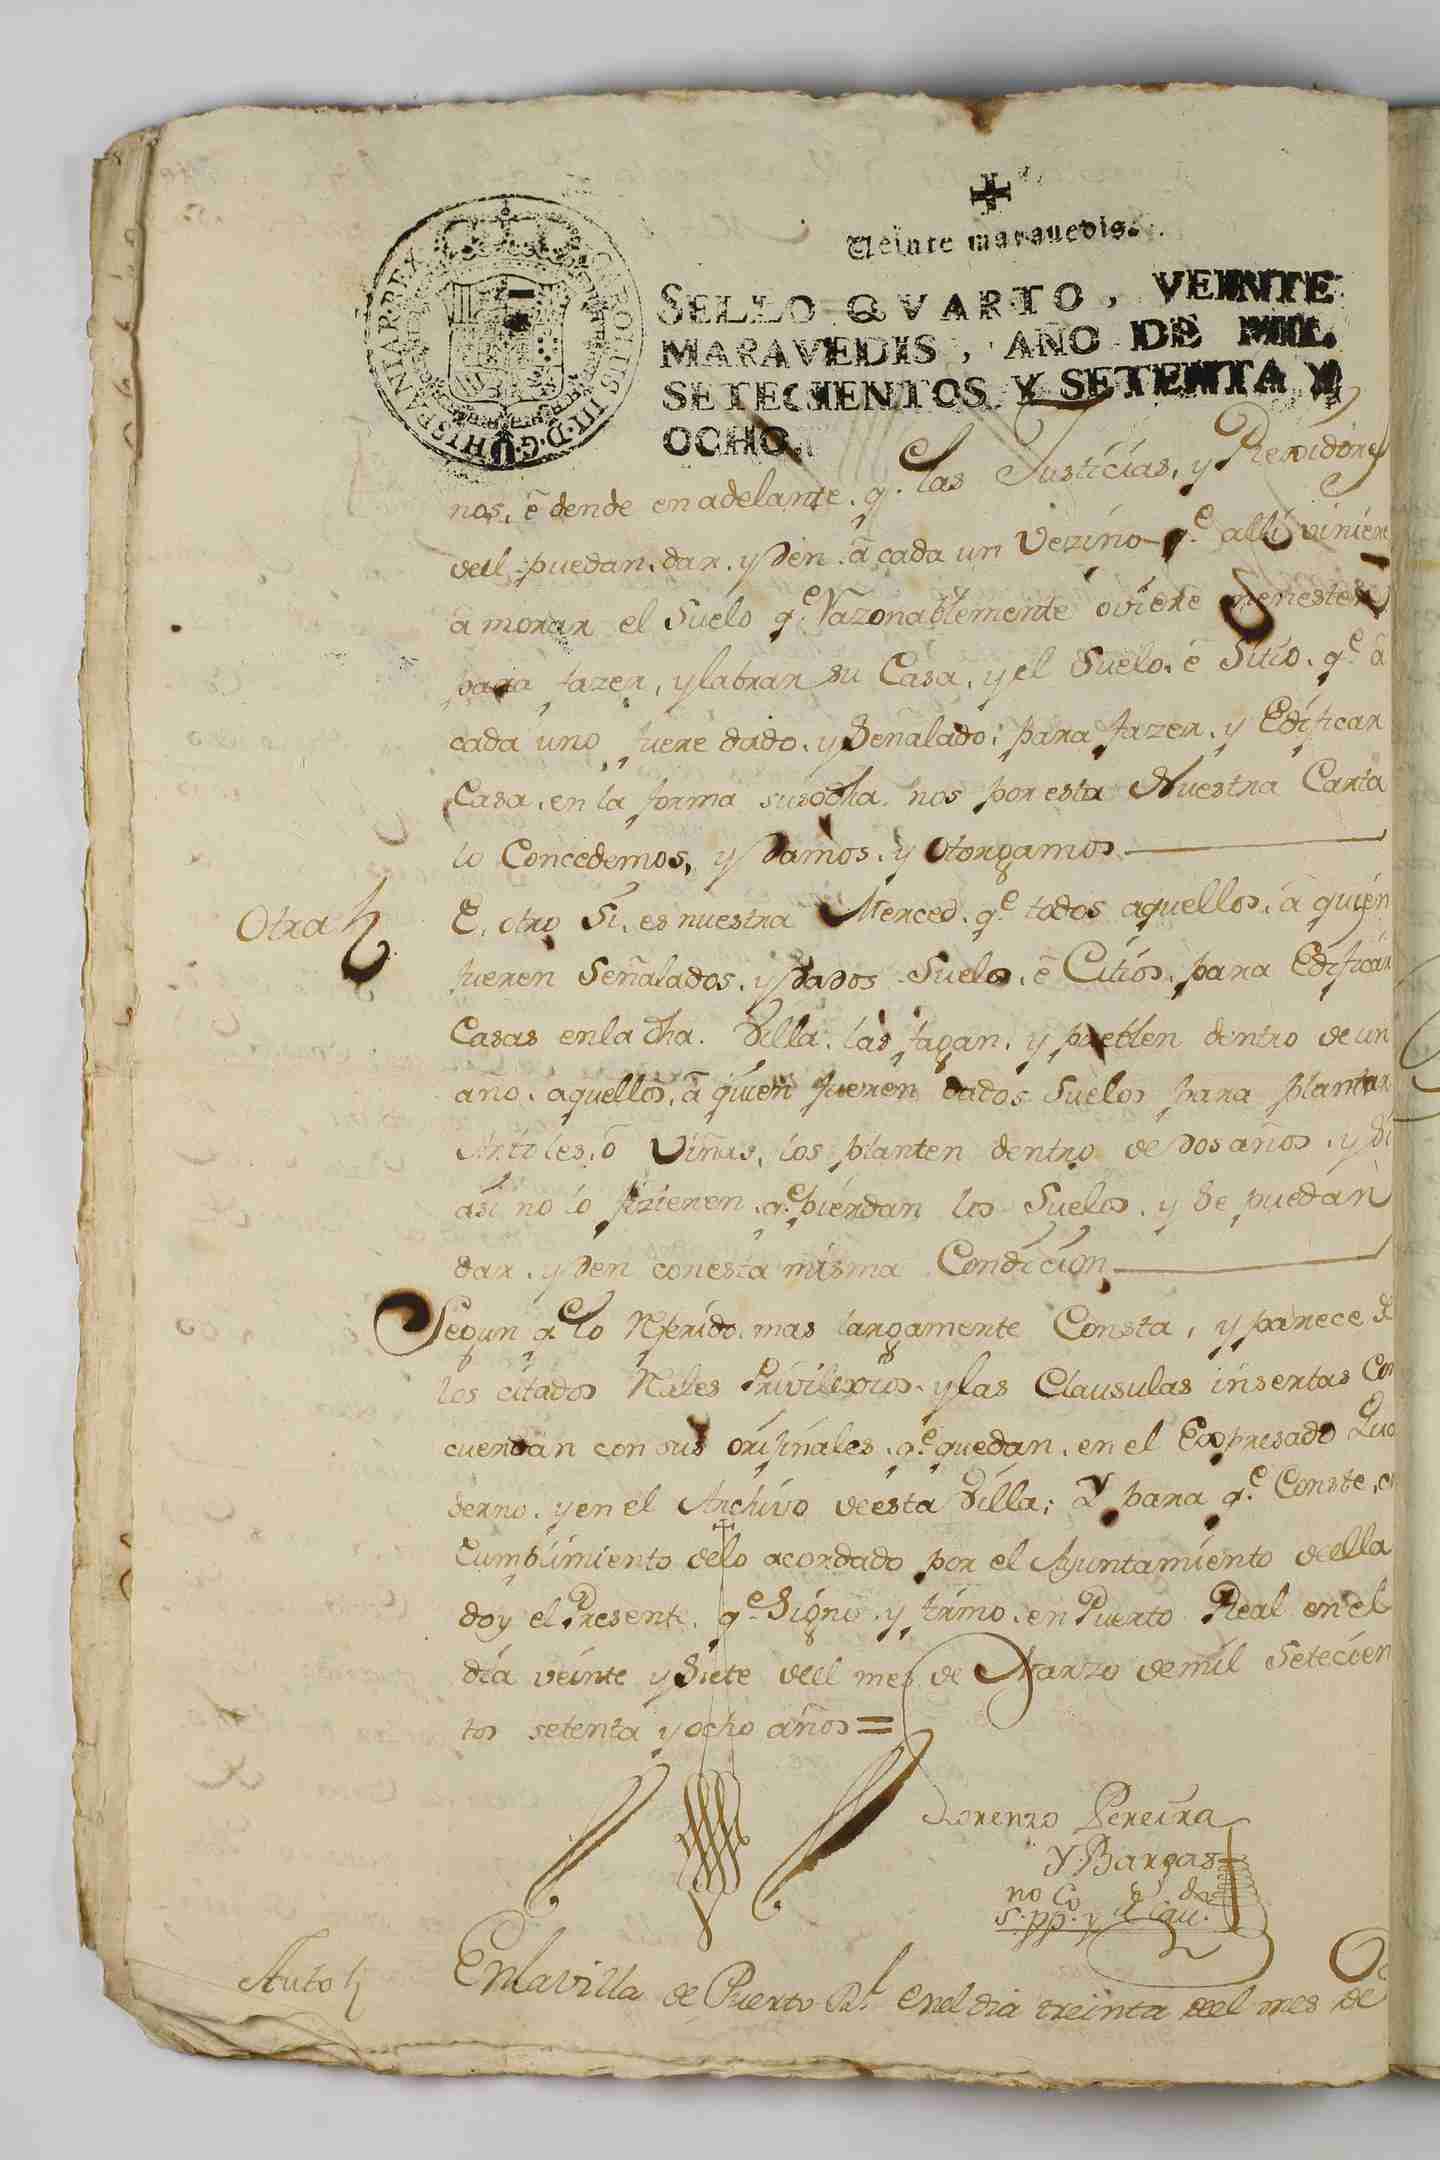 CAROLUS III·D·G·HISPANIAR·REX
Veinte maravedis.
SELLO QVARTO, VEINTE
MARAVEDIS, AÑO DE MIL
SETECIENTOS Y SETENTA Y
OCHO.
nos, é dende en adelante. q.e las Justicias, y Rexidores
deel puedan. dar. y den. â cada un Vezino q.e alli viniere
a morar el Suelo q.e Razonablemente oviere menester
para fazer, y labrar su Casa, y el Suelo. é Sitio. q.e â
cada uno fuere dado. y Señalado; para fazer. y Edificar
Casa. en la forma susodha. nos por esta Nuestra Carta
lo Concedemos, y Damos. y Otorgamos
Otra
E. otro Si. es nuestra Merced. q.e todos aquellos. â quien
fueren Señalados. y Dados Suelos. é Citios. para Edificar
Casas en la dha. Villa. las fagan. y pueblen dentro de un
año. aquellos. â quien fueren dados Suelos para plantar
Arboles. ô Viñas. los planten dentro de dos años. y Si
asi no lo fizieren. q.e pierdan los Suelos. y Se puedan
dar. y Den con esta misma Condicion
Segun q.e lo Referido. mas largamente Consta, y parece de
los citados Rales Privilexios. y las Clausulas insertas Con
cuerdan con sus orijinales. q.e quedan. en el Expresado Qua
derno. y en el Archivo de esta Villa; Y para q.e Conste. en
Cumplimiento de lo acordado por el Ayuntamiento de ella
doy el Presente. q.e Signo. y firmo. en Puerto Real en el
dia veinte y Siete deel mes de Marzo de mil Setecien
tos setenta y ocho años=
Lorenzo Pereira
Y. Bargas
Auto
En la villa de Puerto Rl. en el dia treinta deel mes de